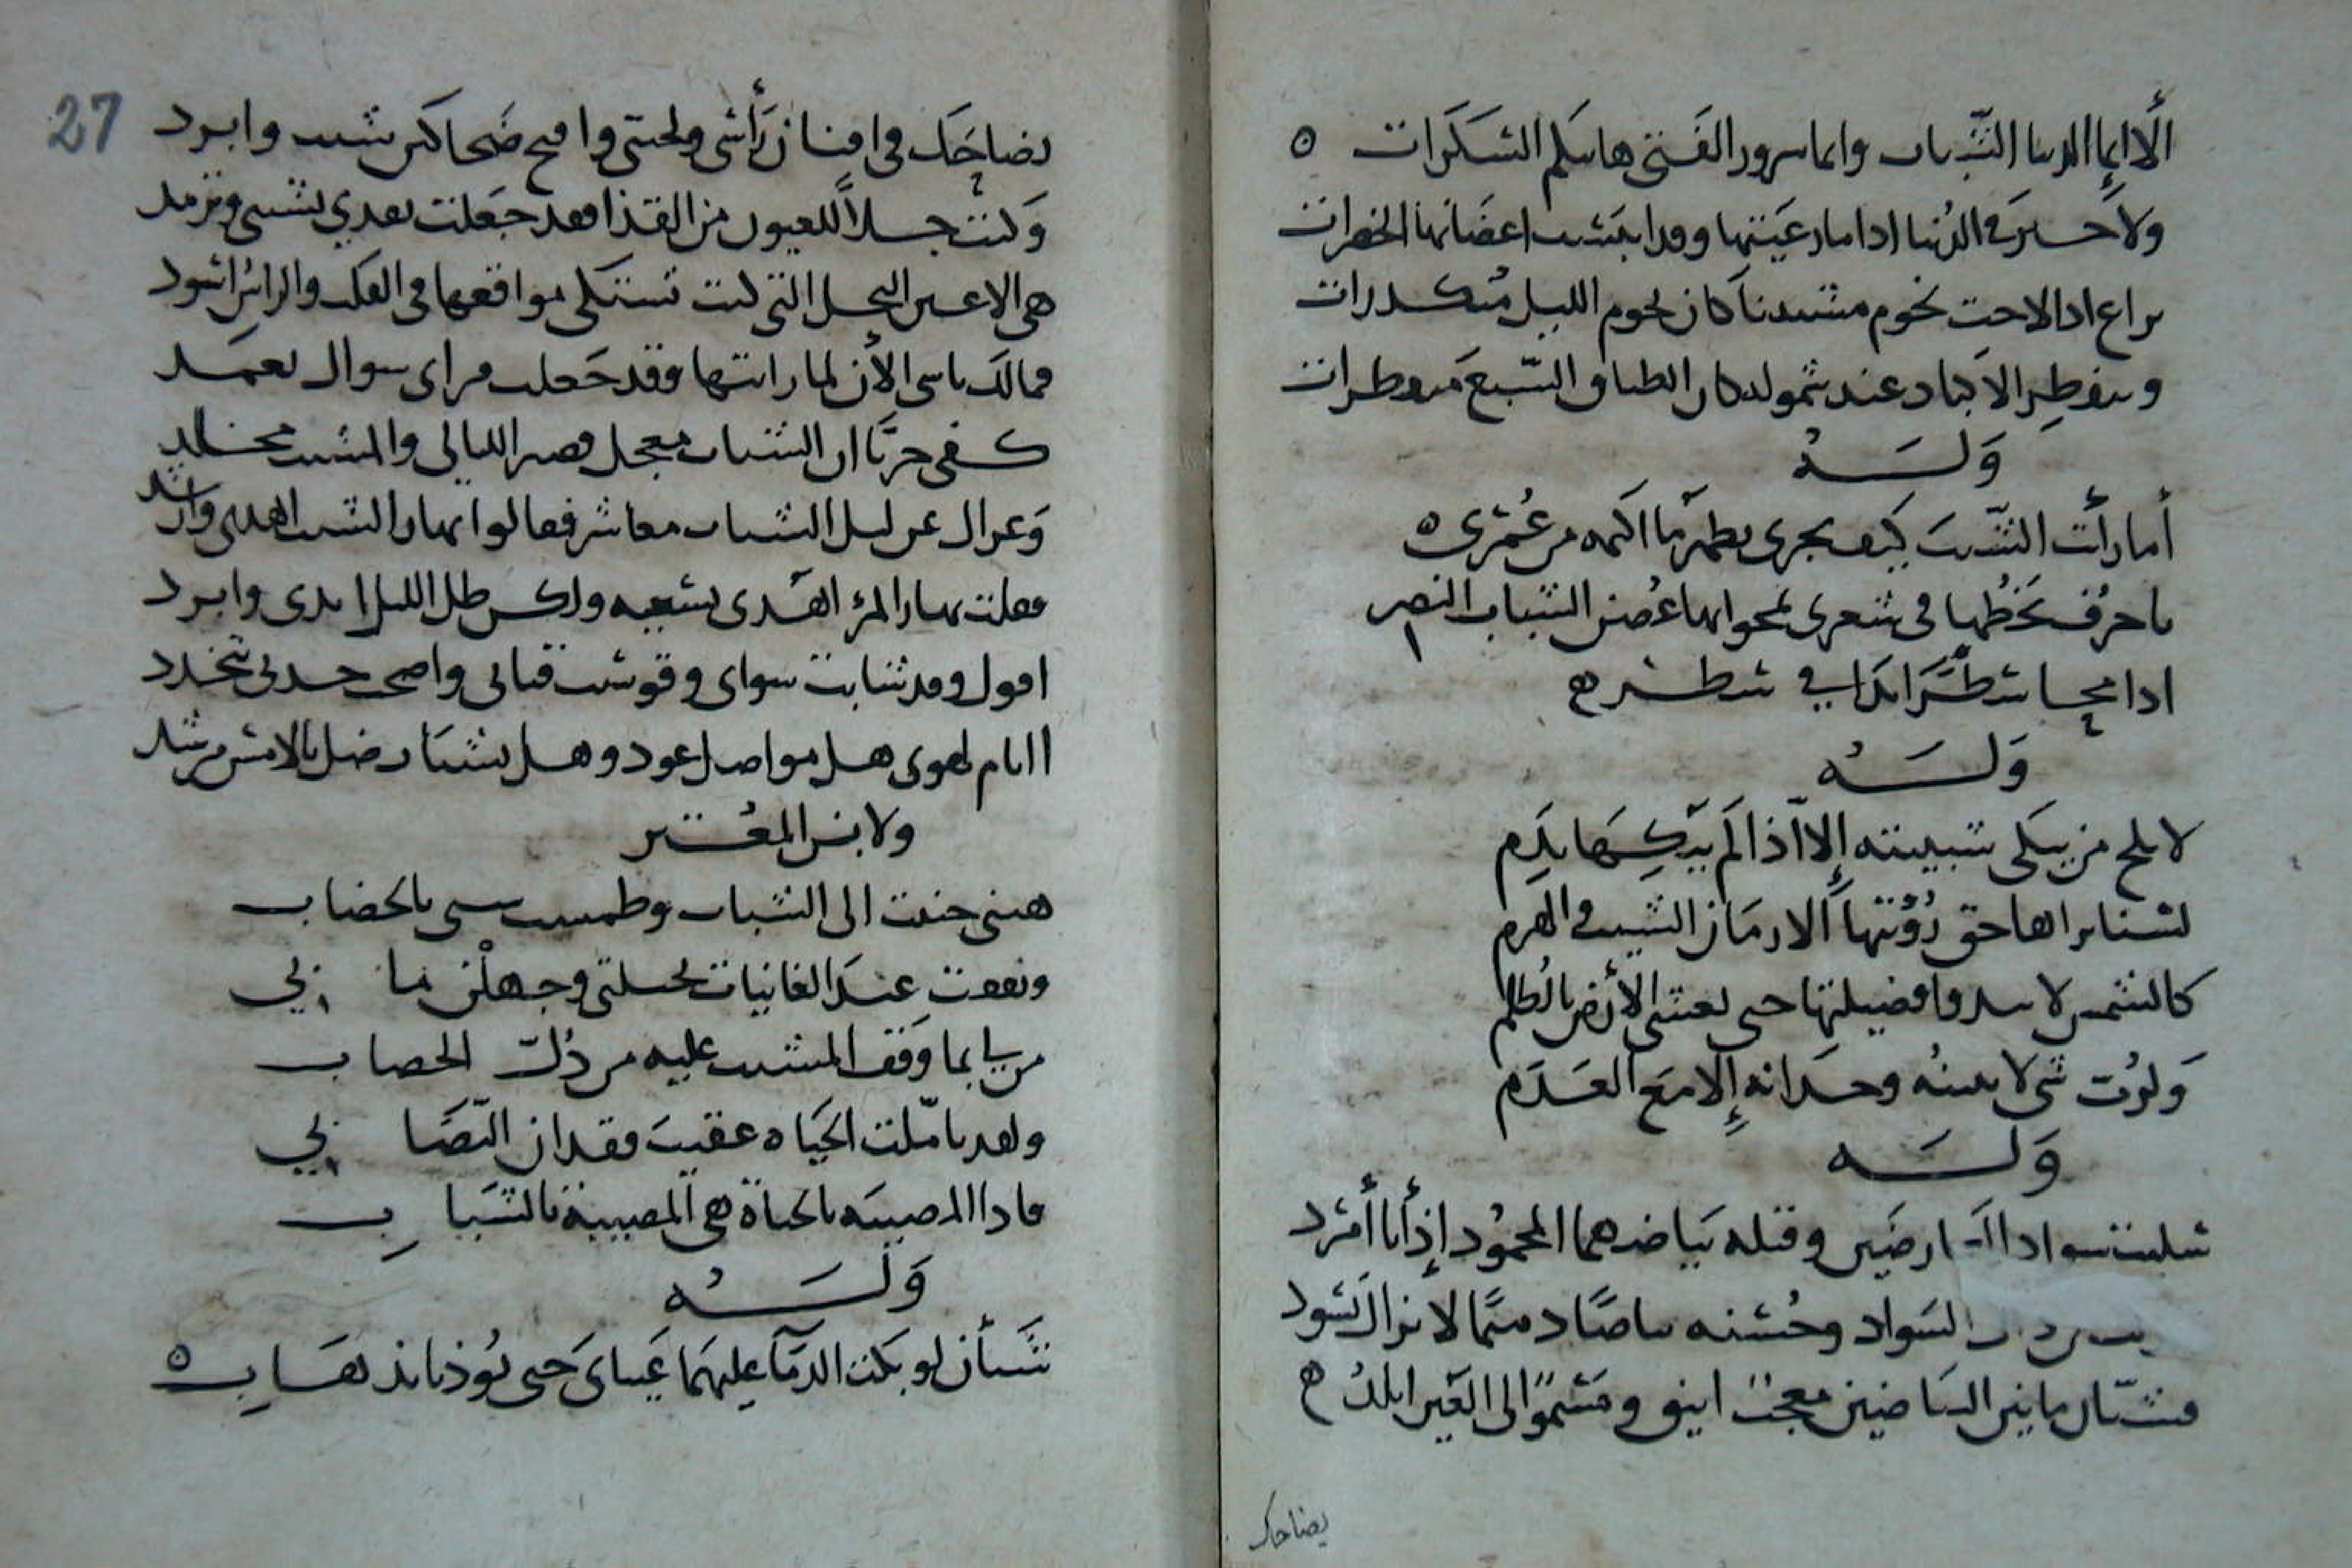 ألا إنما الدنيا الشباب وإنما سرور الفتى هاتيكم السكرات
ولا خير في الدنيا إذا ما رعيتها وقد ايبست اعضانها الخضرات
يراع اذا لاحت نجوم مشيبنا كان نجوم الليل منكدرات
وينفطر الاكباد عند شموله كان الطباق السبع منفطرات
وله
أما رأيت الشيب كيف يجري يطمر ما اكمه من عمري
يا حرف يخطها في شعري يمحو بها غصن الشباب النضر
اذا محا شطرا بدا في شطر
وله
لا يلح من يبكي شبيبته إلا إذا لم يبكها بدم
لسنا نراها حق رؤيتها الا زمان الشيب والهرم
كالشمس لا تبدو فضيلتها حتى تغشى الأرض بالظلم
ولرب شي لا يبينه وجدانه إلا مع العدم
وله
سلبت سواد العارضين وقبله بياضهما المحمود إذ أنا أمرد
السواد وحسنه بياضا ذميما لا يزال يسود
فشتان ما بين البياضين معجب انيق ومشنو الى العين ابلد
يضاحك
27
يضاحك في افنان رأسي ولحيتي واقبح ضحاكين شيب وادرد
وكنت جلاً للعيون من القذا فقد جعلت تقذي بشيبي وترمد
هي الاعين النجل التي كنت تشتكي مواقعها في القلب والراس اسود
فمالك تاسى الآن لما رايتها وقد جعلت مرأى سواك تعمد
كفى حزنا ان الشباب معجل قصير الليالي والمشيب مخلد
وعزاك عن ليل الشباب معاشر فقالوا نهار الشيب اهدى وارشد
فقلت نهار المرء اهدى لسعيه ولكن ظل الليل اندى وابرد
اقول وقد شابت شواي وقوست قناتي واضحى خدي تخدد
اايام لهوي هل مواصل عود وهل لشباب ضل بالامس مرشد
ولابن المعتز
هبني حننت الى الشباب وطمست شيبي بالخضاب
ونفقت عند الغانيات بحيلتي وجهلن ما بي
من لي بما وقف المشيب عليه من ذل الخضاب
ولقد تاملت الحياه عقيب فقدان التصابي
فاذا المصيبه بالحياة هي المصيبة بالشباب
وله
شيئان لو بكت الدما عليهما عيناي حتى يؤذنا بذهاب